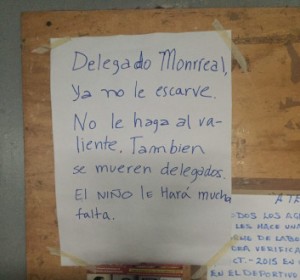 Delegado Monreal,
ya no le escarve.
No le haga al va-
liente. Tambien
se mueren delegados.
El NIÑO le Hará mucha
falta.
A TE
ODOS LOS AG
LES HACE UNA
ENO DE LABO
DRA VERIFICA
CT.-2015 EN
EN EL DEPORTIV